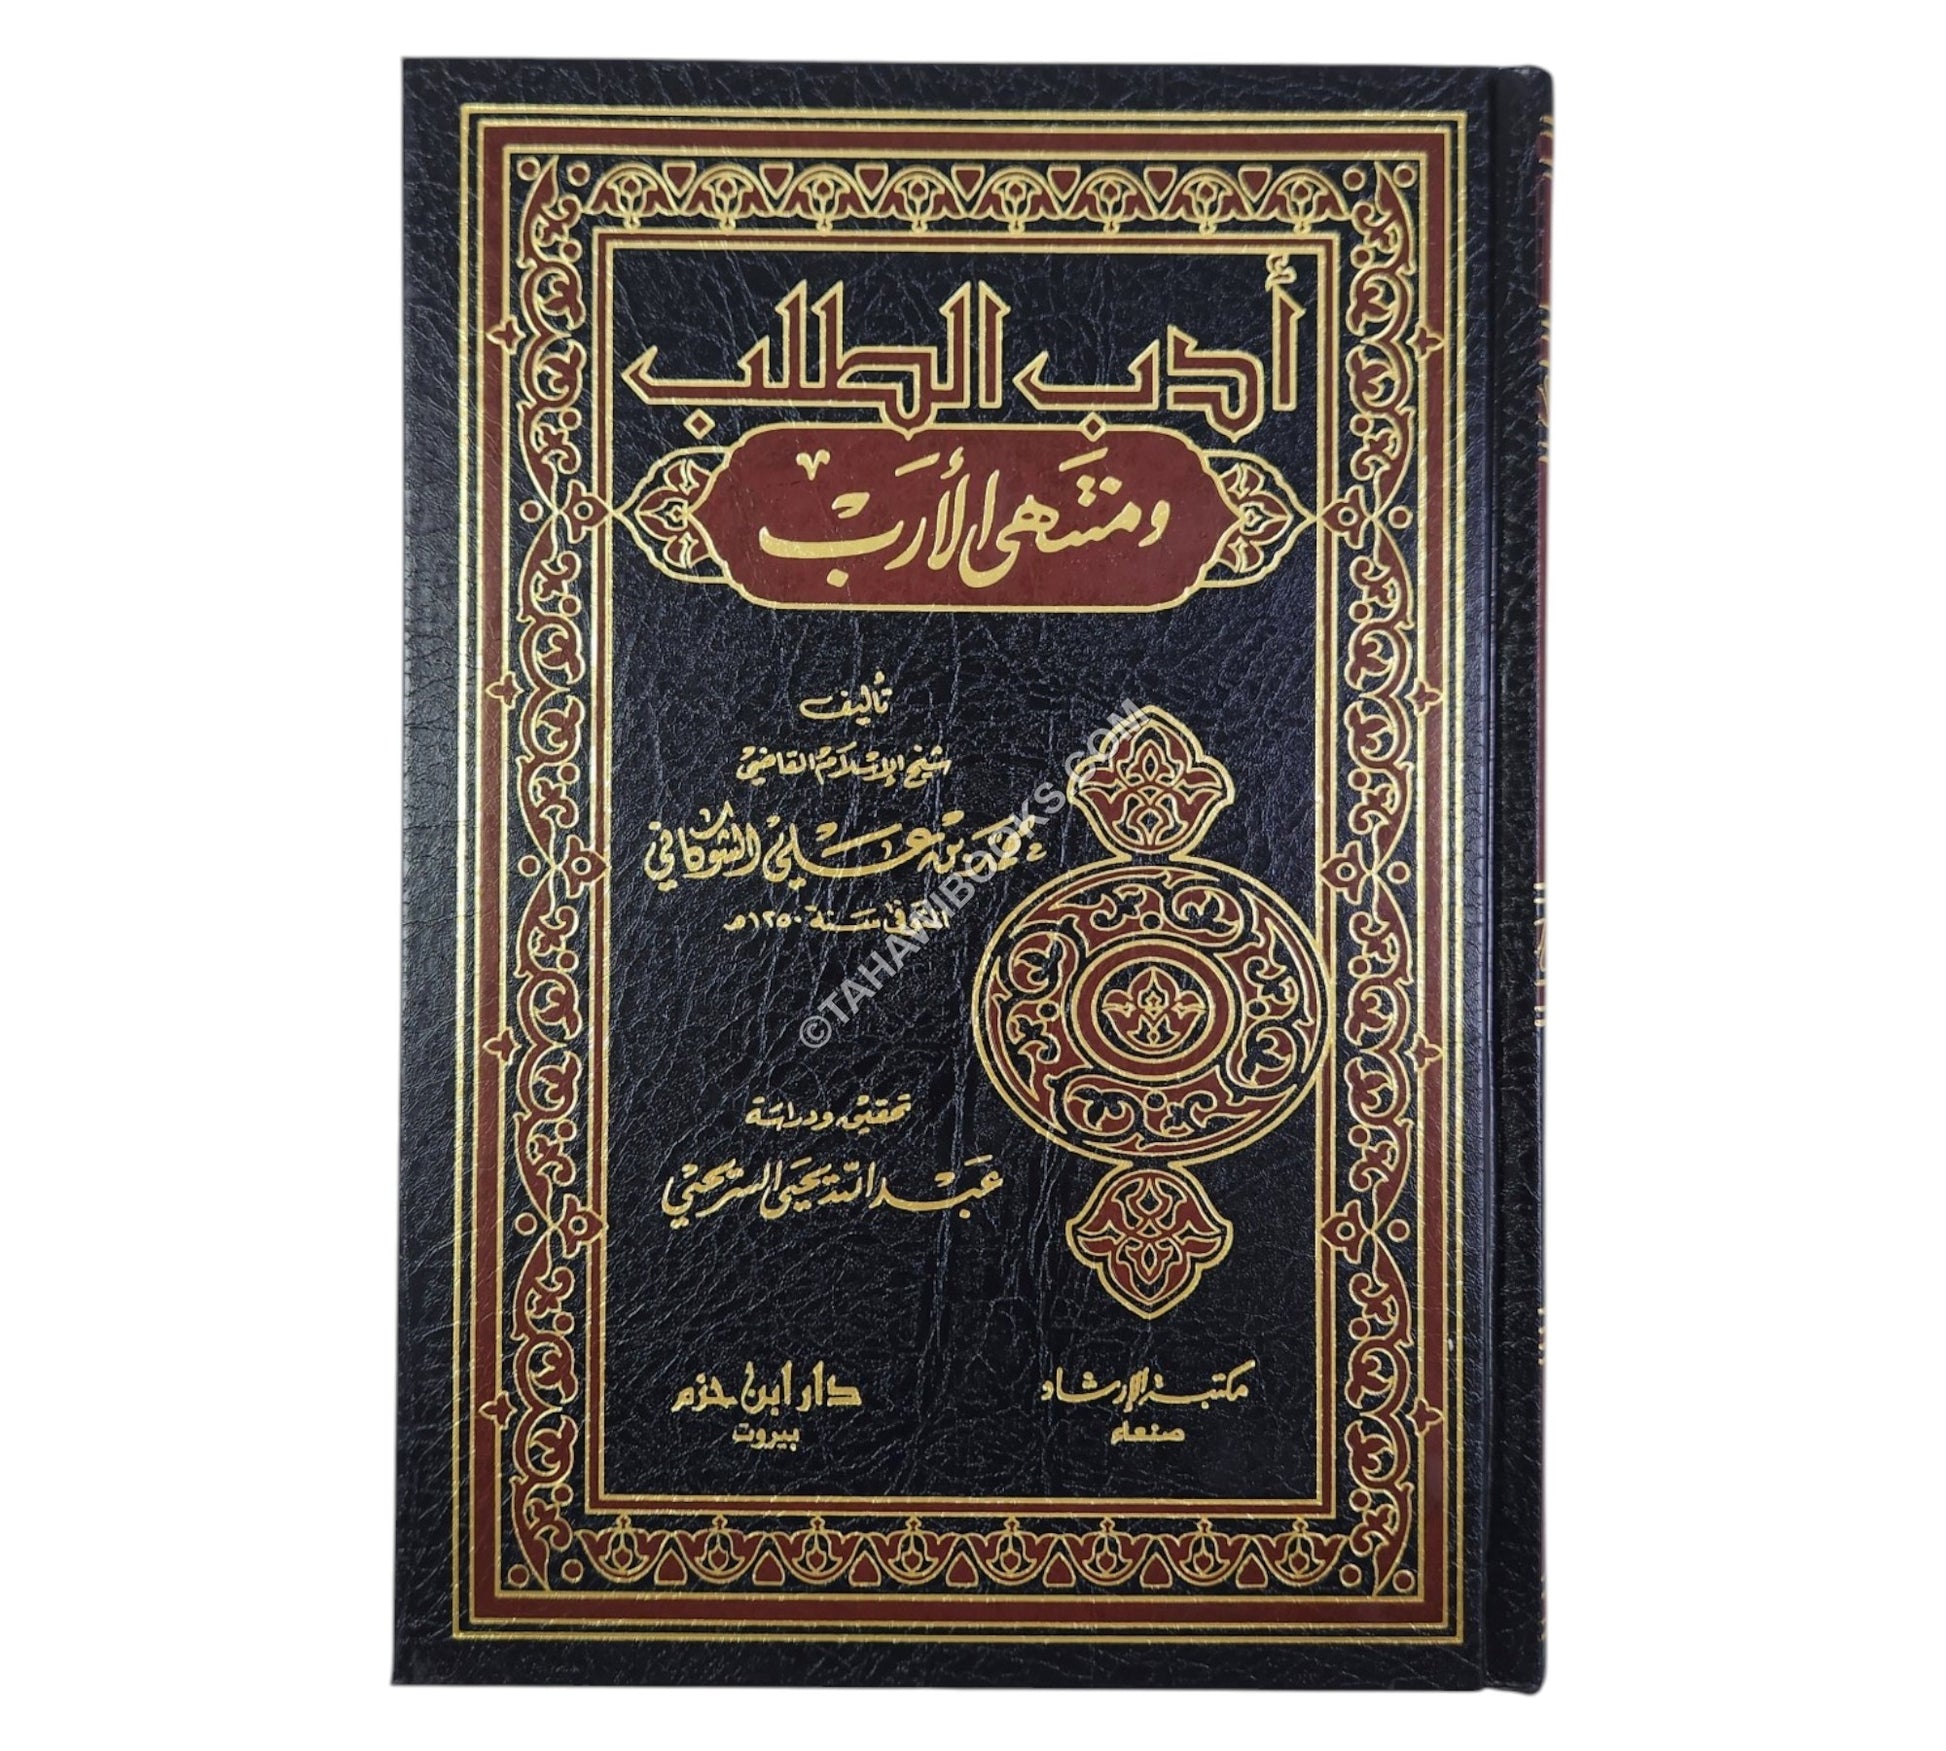 أدب الطلب
ومنتهى الأرب
تأليف
شيخ الإسلام القاضي
محمد بن علي الشوكاني
المتوفى سنة ١٢٥٠هـ
©TAHAWIBOOKS.COM
تحقيق ودراسة
عبد الله يحيى السريحي
مكتبة الإرشاد
صنعاء
دار ابن حزم
بيروت